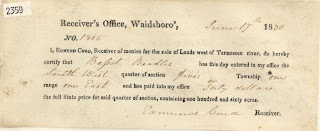 2359
Receiver's Office, Waidsboro', June 17th 1830
NO. 1805
I, EDMUND CURD, Receiver of monies for the sale of Lands west of Tennessee river, do hereby
certify that Basset Beadles has this day entered in my office the
South West quarter of section five Township one
range one East and has paid into my office Forty dollars
the full State price for said quarter of section, containing one hundred and sixty acres.
Edmund Curd Receiver.